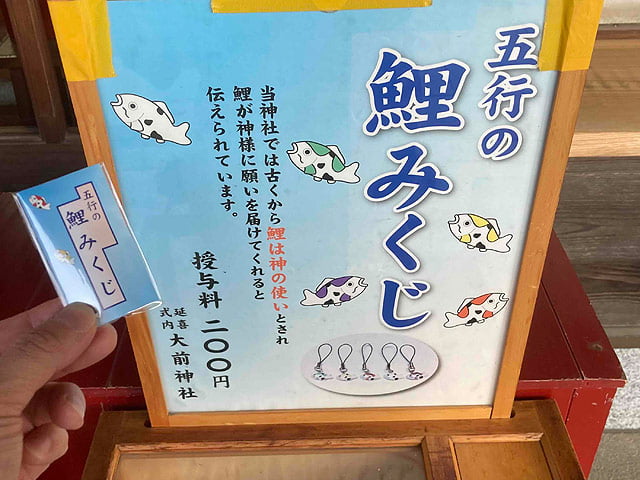 五行の
鯉みくじ
当神社では古くから鯉は神の使いとされ
鯉が神様に願いを届けてくれると
伝えられています。
授与料 二〇〇円
延喜
式内 大前神社
五行の
鯉みくじ